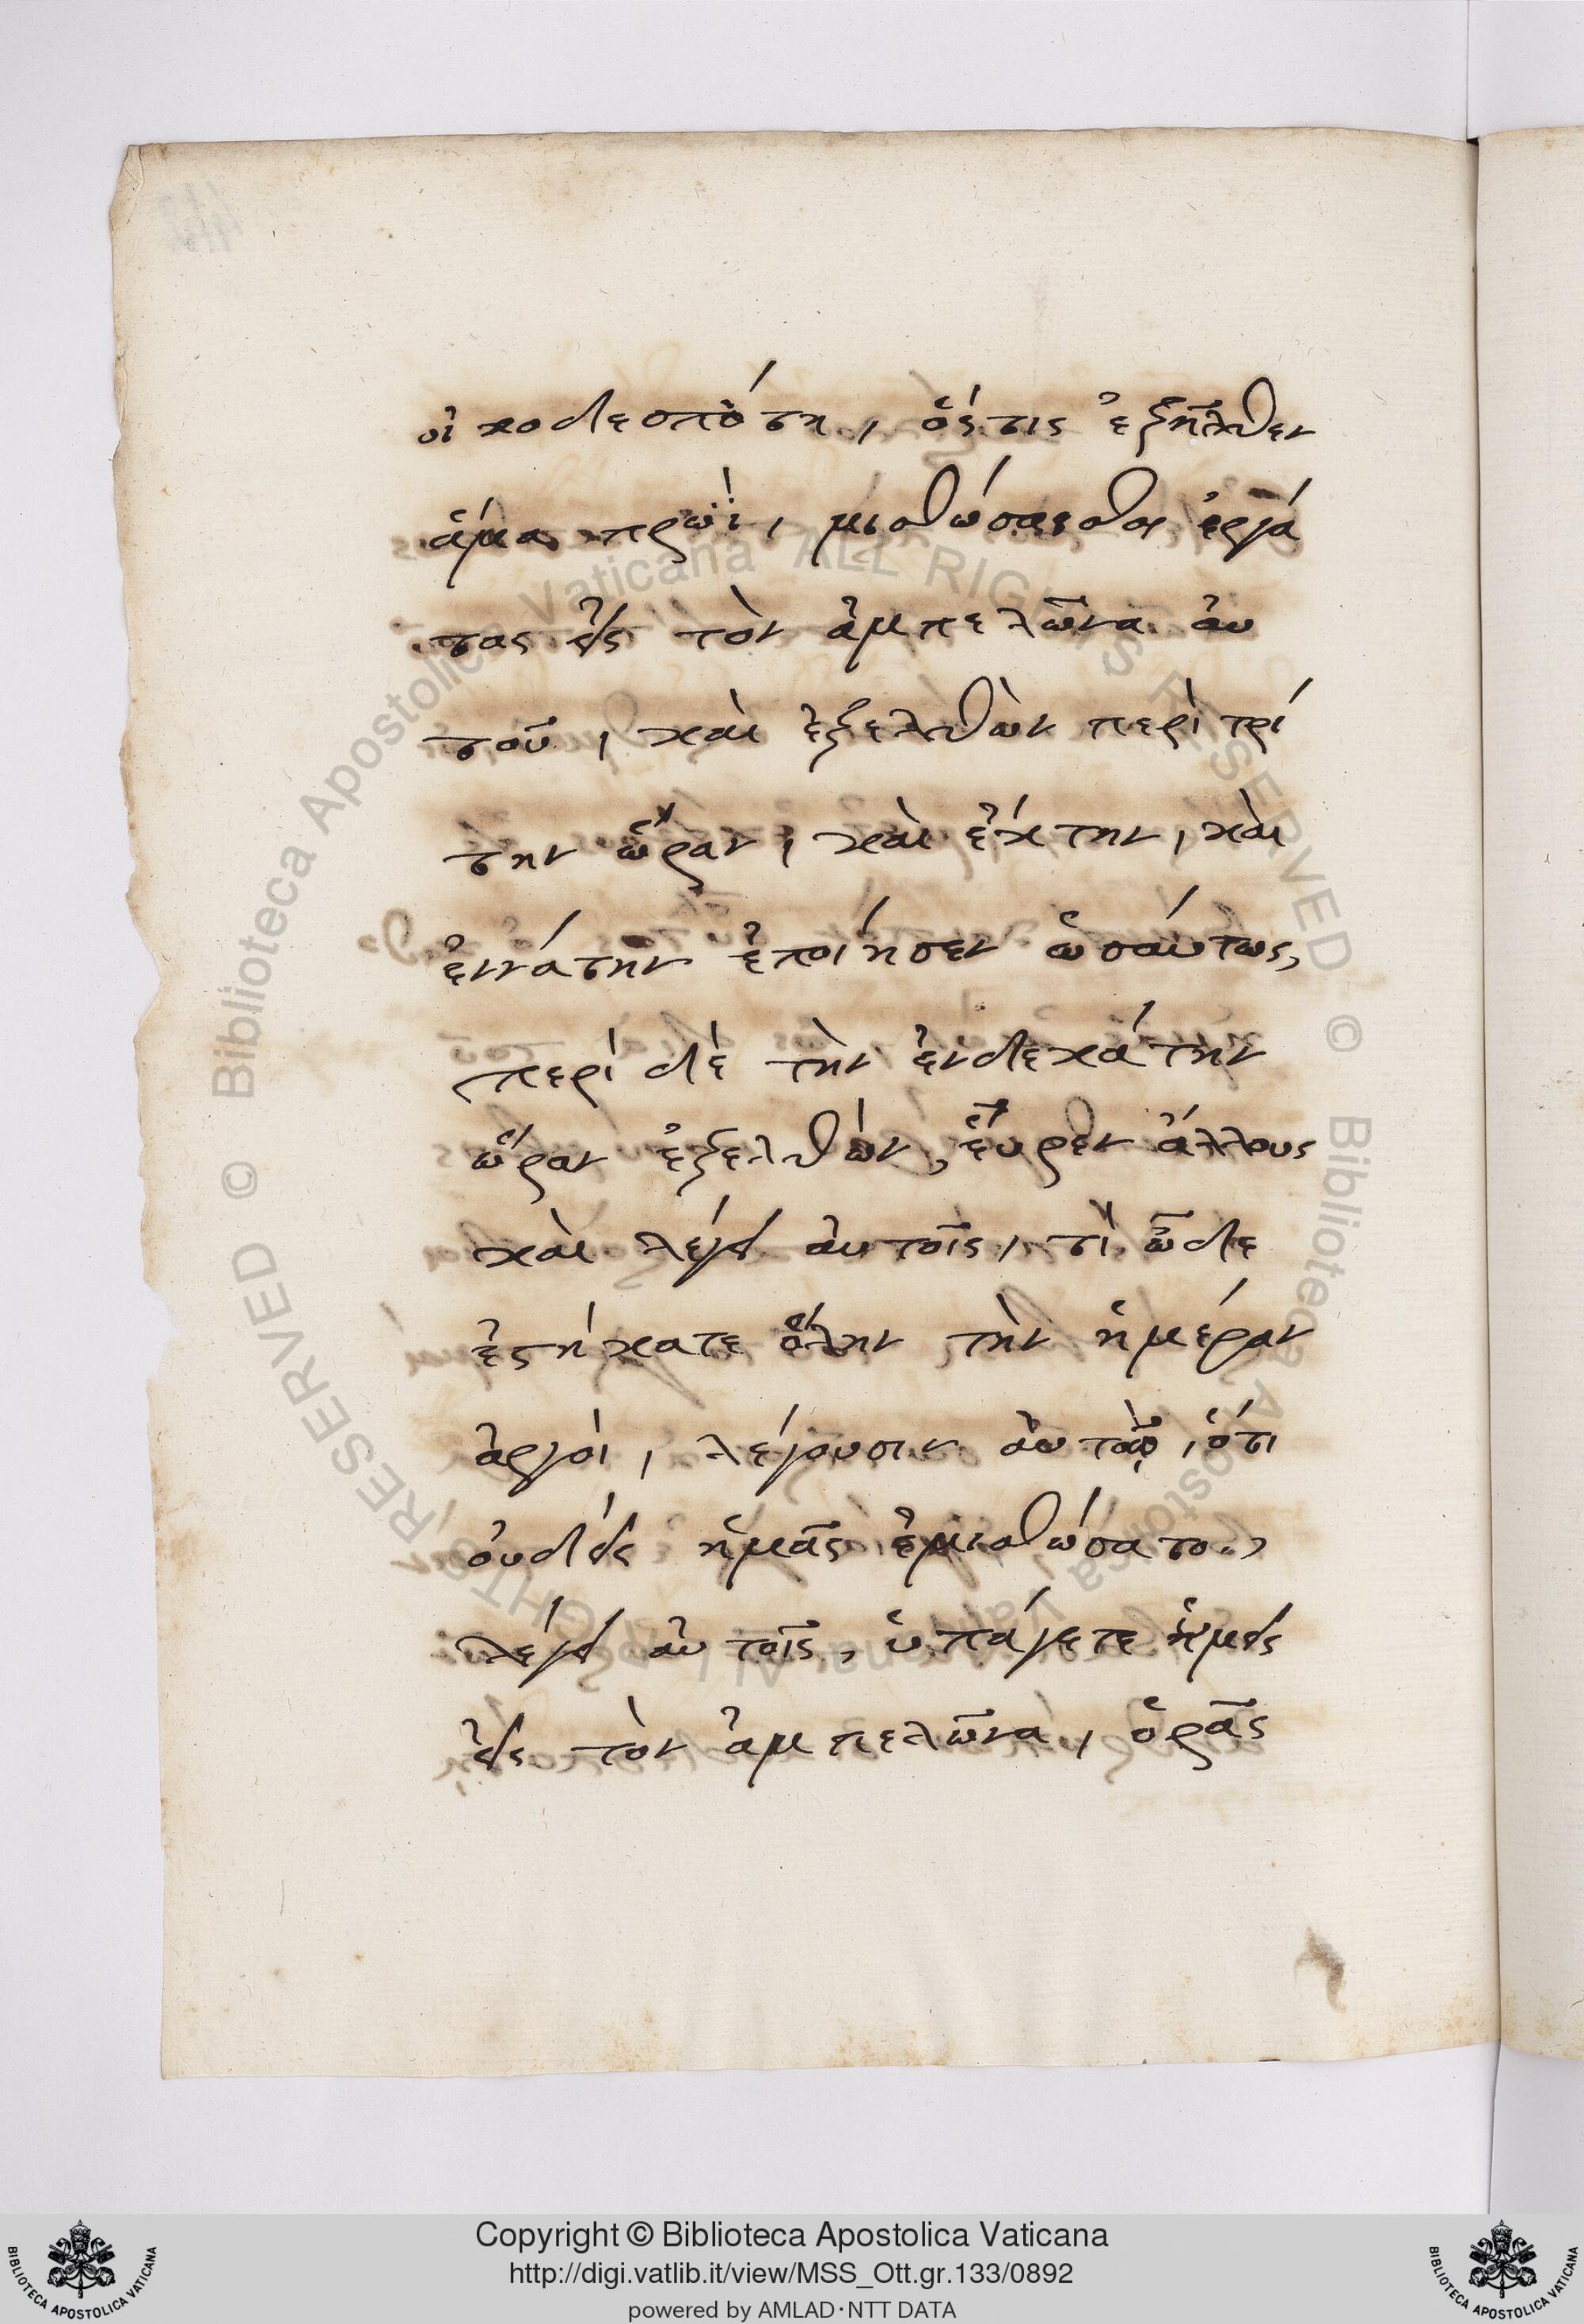 οἰκοδεσπότη, ὅςτις ἐξῆλθεν
ἅμα πρωῒ, μισθώσασθαι ἐργά
τας εἰς τὸν ἀμπελῶνα αὐ
τοῦ, καὶ ἐξελθὼν περὶ τρί
την ὥραν, καὶ ἕκτην, καὶ
ἐννάτην ἐποίησεν ὡσαύτως,
περὶ δὲ τὴν ἑνδεκάτην
ὥραν ἐξελθὼν, εὗρεν ἄλλους
καὶ λέγει αὐτοῖς, τί ὧδε
ἑστήκατε ὅλην τὴν ἡμέραν
ἀργοὶ, λέγουσιν αὐτῷ, ὅτι
οὐδείς ἡμᾶς ἐμισθώσατο,
λέγει αὐτοῖς, ὑπάγετε ὑμεῖς
εἰς τὸν ἀμπελῶνα, ὁρᾶς
Copyright © Biblioteca Apostolica Vaticana
http://digi.vatlib.it/view/MSS_Ott.gr.133/0892
powered by AMLAD·NTT DATA
© Biblioteca Apostolica Vaticana ALL RIGHTS RESERVED
© Biblioteca Apostolica Vaticana ALL RIGHTS RESERVED
BIBLIOTECA APOSTOLICA VATICANA
BIBLIOTECA APOSTOLICA VATICANA